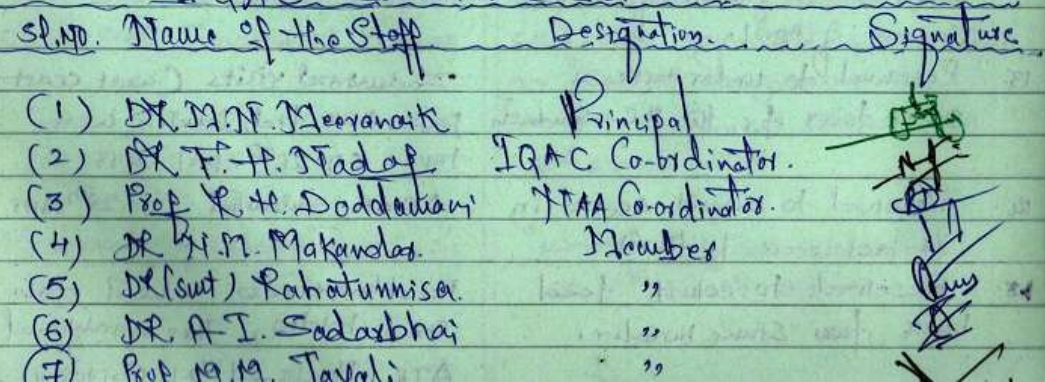 Sl.No. Name of the Staff Designation. Signature
(1) DR. M.N. Meeranaik Principal
(2) DR F.H. Nadaf IQAC Co-ordinator.
(3) Prof R.H. Doddamani NAA Co-ordinator.
(4) DR N.M. Makandar. Member
(5) DR (Smt) Rahatunnisa. ,,
(6) DR. A.I. Sadarbhai ,,
(7) Prof M.M. Tavali ,,